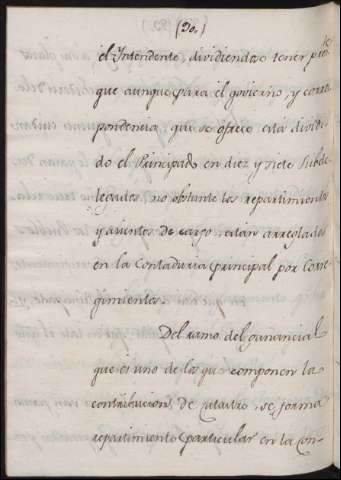 (30.)
el Intendente, dividiendose tener
que aunque para el govierno, y corres
pondencia, que se ofrece está dividi
do el Principado en diez y siete Subde
legados, no obstante los repartimientos
y asientos de cargo están arreglados
en la Contaduria principal por Corre
gimientos.
Del ramo del ganancial
que es uno de los que componen la
contribucion, de Catastro, se forma
repartimiento particular en la Con-